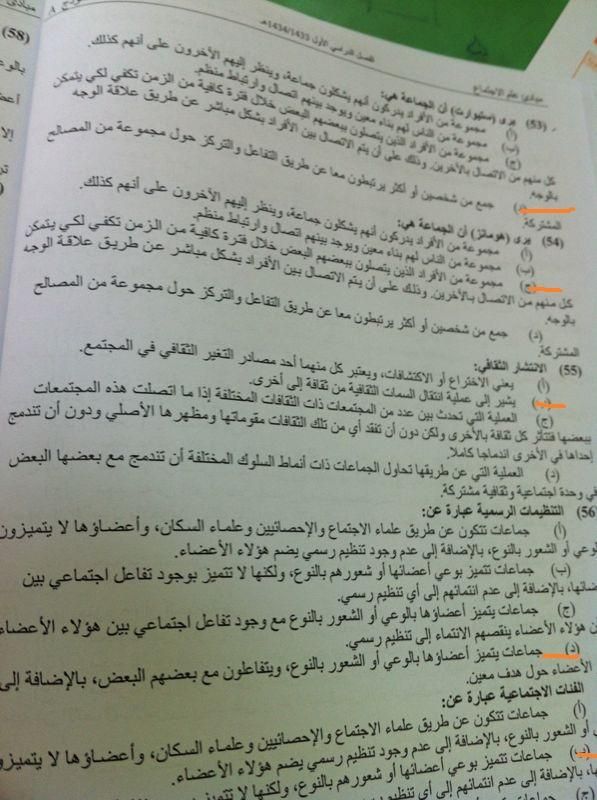 مبادئ علم الاجتماع
الفصل الدراسي الأول 1434/1433هـ
(53) يرى (ستيوارت) أن الجماعة هي:
(أ) مجموعة من الأفراد يدركون أنهم يشكلون جماعة، وينظر إليهم الآخرون على أنهم كذلك.
(ب) مجموعة من الناس لهم بناء معين ويوجد بينهم اتصال وارتباط منظم.
(ج) مجموعة من الأفراد الذين يتصلون ببعضهم البعض خلال فترة كافية من الزمن تكفي لكي يتمكن
كل منهم من الاتصال بالآخرين. وذلك على أن يتم الاتصال بين الأفراد بشكل مباشر عن طريق علاقة الوجه
بالوجه.
(د) جمع من شخصين أو أكثر يرتبطون معا عن طريق التفاعل والتركز حول مجموعة من المصالح
المشتركة.
(54) يرى (هومانز) أن الجماعة هي:
(أ) مجموعة من الأفراد يدركون أنهم يشكلون جماعة، وينظر إليهم الآخرون على أنهم كذلك.
(ب) مجموعة من الناس لهم بناء معين ويوجد بينهم اتصال وارتباط منظم.
(ج) مجموعة من الأفراد الذين يتصلون ببعضهم البعض خلال فترة كافية من الزمن تكفي لكي يتمكن
كل منهم من الاتصال بالآخرين. وذلك على أن يتم الاتصال بين الأفراد بشكل مباشر عن طريق علاقة الوجه
بالوجه.
(د) جمع من شخصين أو أكثر يرتبطون معا عن طريق التفاعل والتركز حول مجموعة من المصالح
المشتركة.
(55) الانتشار الثقافي:
(أ) يعني الاختراع أو الاكتشافات، ويعتبر كل منهما أحد مصادر التغير الثقافي في المجتمع.
(ب) يشير إلى عملية انتقال السمات الثقافية من ثقافة إلى أخرى.
(ج) العملية التي تحدث بين عدد من المجتمعات ذات الثقافات المختلفة إذا ما اتصلت هذه المجتمعات
ببعضها فتتأثر كل ثقافة بالأخرى ولكن دون أن تفقد أي من تلك الثقافات مقوماتها ومظهرها الأصلي ودون أن تندمج
إحداها في الأخرى اندماجا كاملا.
(د) العملية التي عن طريقها تحاول الجماعات ذات أنماط السلوك المختلفة أن تندمج مع بعضها البعض
في وحدة اجتماعية وثقافية مشتركة.
(56 التنظيمات الرسمية عبارة عن:
(أ) جماعات تتكون عن طريق علماء الاجتماع والإحصائيين وعلماء السكان، وأعضاؤها لا يتميزون
الوعي أو الشعور بالنوع، بالإضافة إلى عدم وجود تنظيم رسمي يضم هؤلاء الأعضاء.
(ب) جماعات تتميز بوعي أعضائها أو شعورهم بالنوع، ولكنها لا تتميز بوجود تفاعل اجتماعي بين
ضائها، بالإضافة إلى عدم انتمائهم إلى أي تنظيم رسمي.
(ج) جماعات يتميز أعضاؤها بالوعي أو الشعور بالنوع مع وجود تفاعل اجتماعي بين هؤلاء الأعضاء
ن هؤلاء الأعضاء ينقصهم الانتماء إلى تنظيم رسمي.
(د) جماعات يتميز أعضاؤها بالوعي أو الشعور بالنوع، ويتفاعلون مع بعضهم البعض، بالإضافة إلى
الأعضاء حول هدف معين.
الفئات الاجتماعية عبارة عن:
(أ) جماعات تتكون عن طريق علماء الاجتماع والإحصائيين وعلماء السكان، وأعضاؤها لا يتميزو
أو الشعور بالنوع، بالإضافة إلى عدم وجود تنظيم رسمي يضم هؤلاء الأعضاء.
(ب) جماعات تتميز بوعي أعضائها أو شعورهم بالنوع، ولكنها لا تتميز
بالإضافة إلى عدم انتمائهم إلى أي تنظيم رسمي.
(ج) جماعات يتميز أعضاؤها
(58)